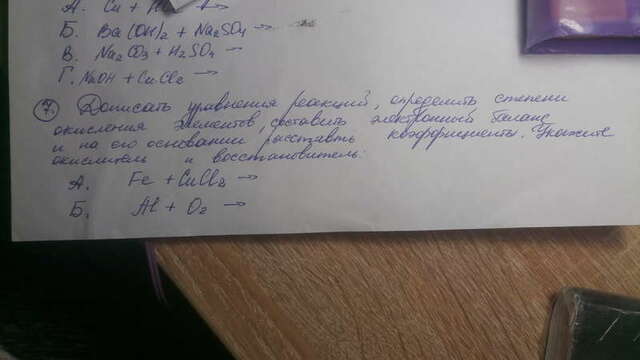 А. Cu +
Б. Ba(OH)2 + Na2SO4 →
В. Na2CO3 + H2SO4 →
Г. NaOH + CuCl2 →
7. Дописать уравнения реакций, определить степени
окисления элементов, составить электронный баланс
и на его основании расставить коэффициенты. Укажите
окислитель и восстановитель:
А. Fe + CuCl2 →
Б. Al + O2 →